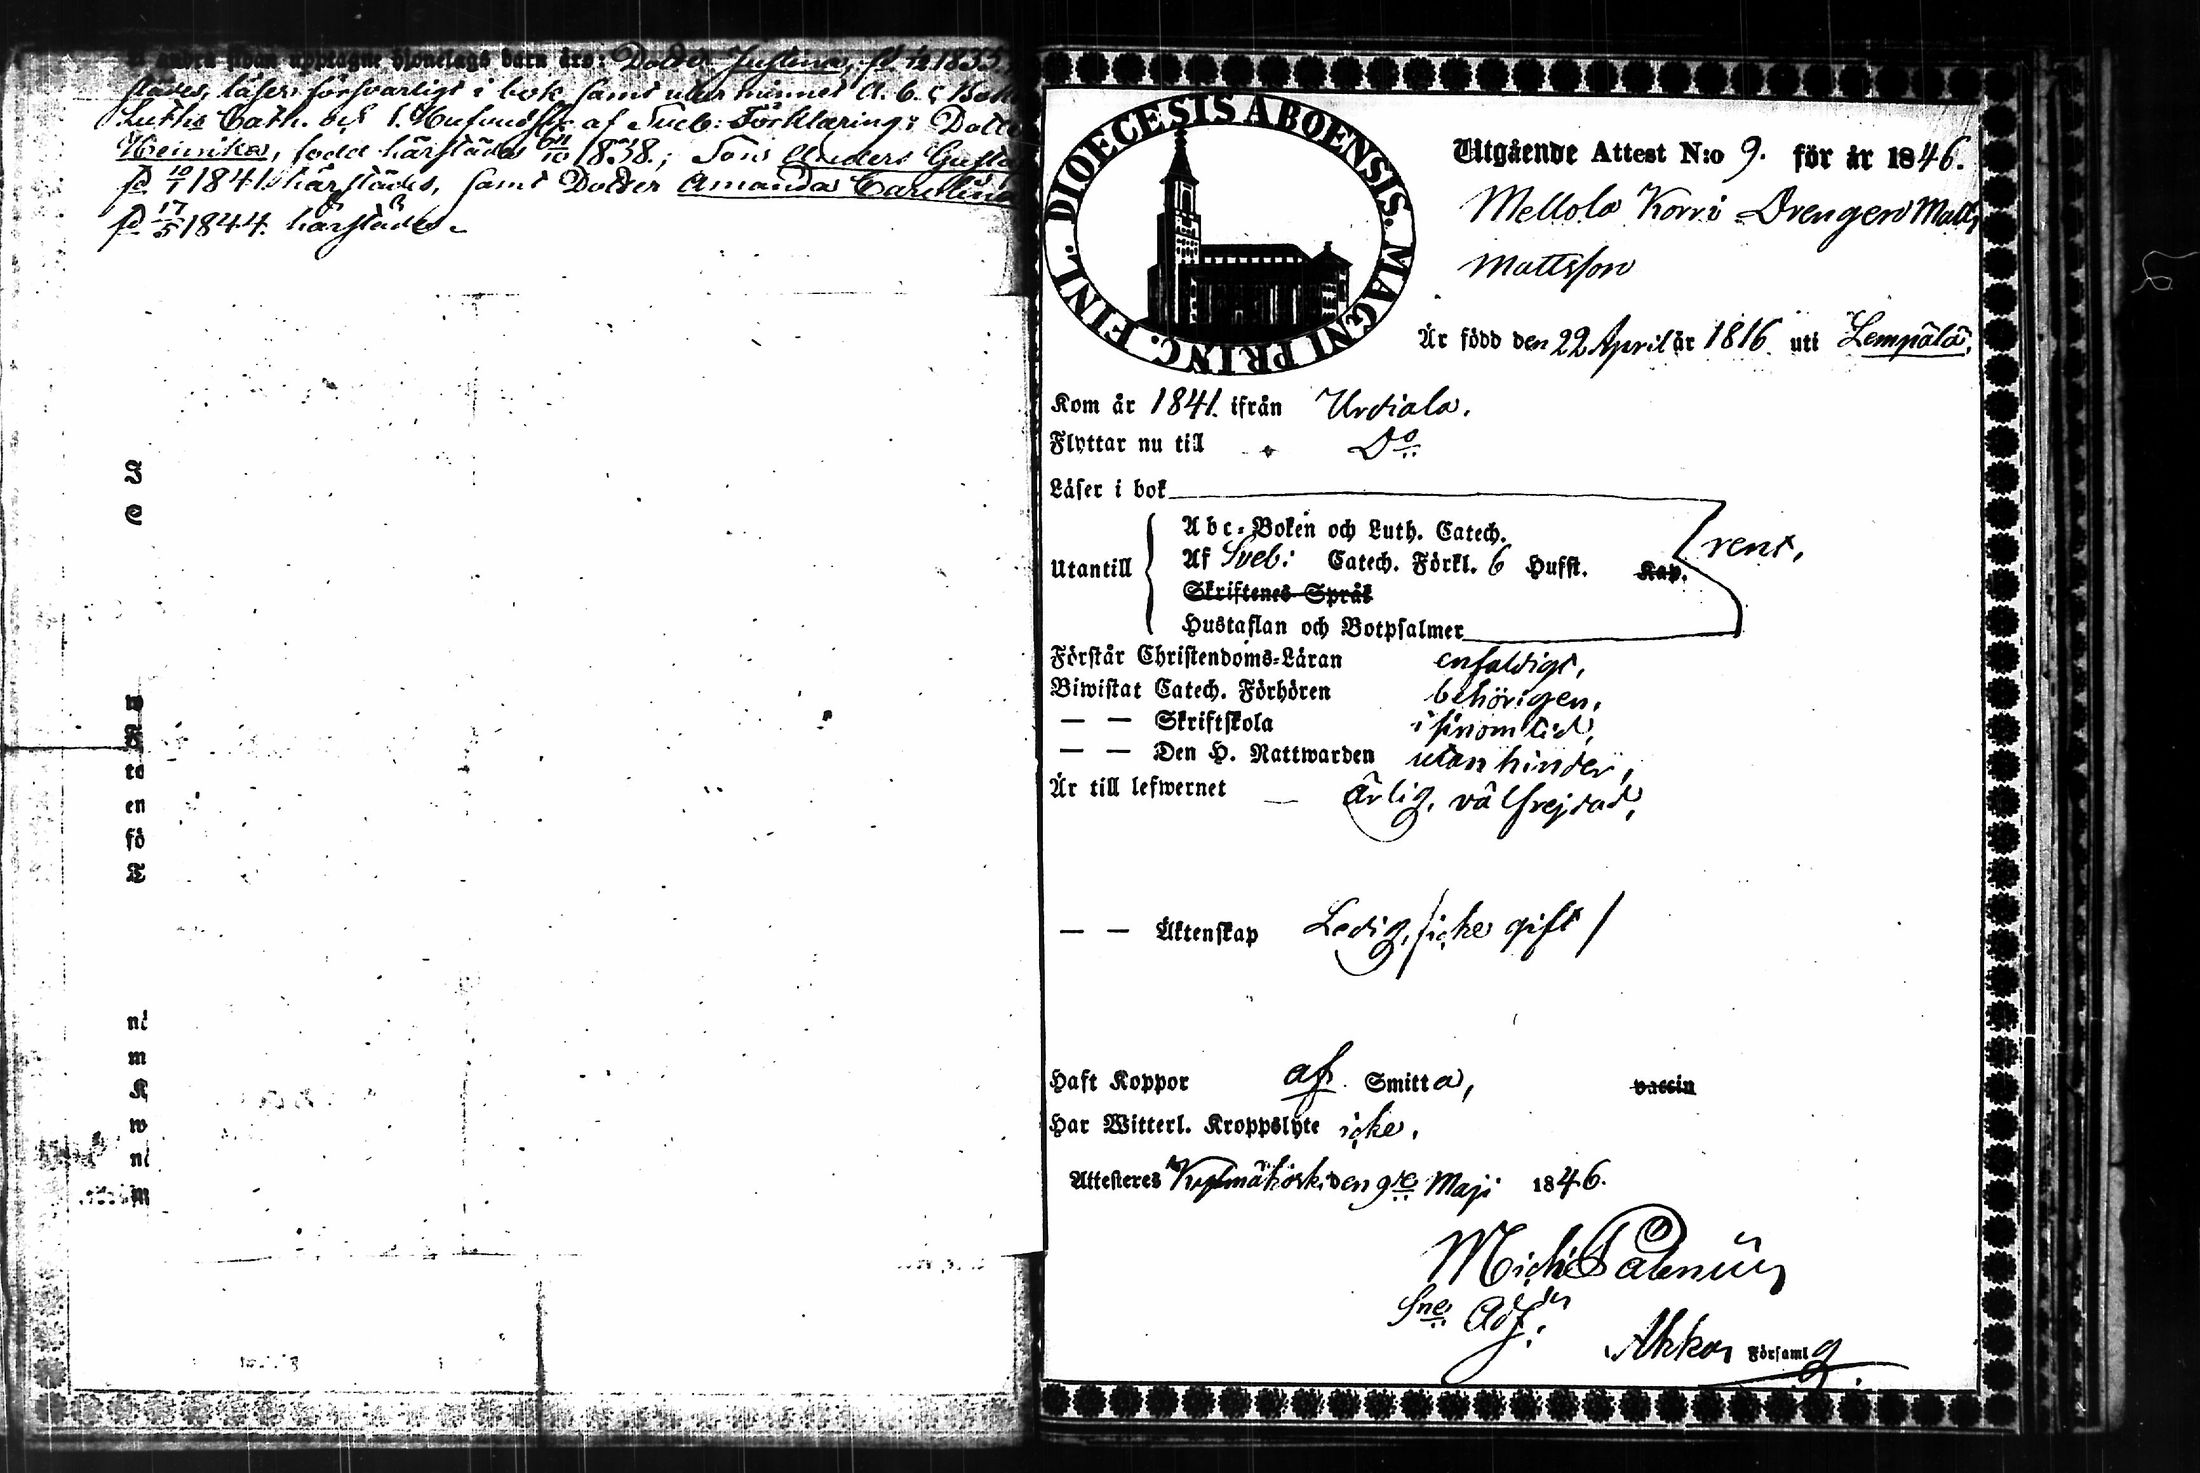 andra sidan upptagne Hjonelags barn äro: Dotter Justina, fd 1835
städes, läser försvarligt i bok samt utur minnet A. b. c Boken
Luthr Cath. och 1. Hufvudst. af Sveb: Förklaring; Dotter
Henrika, född härstädes 1838.; Son Anders Gusta
fd 10/1 1841 härstädes, samt Dotter Amanda Carolina
fd 17/5 1844. härstädes.
I
C
w
N
to
en
fö
T
ni
m
K
w
ni
DIOECESIS ABOENSIS. MAGNI PRINC. FINL.
Utgående Attest N:o 9. för år 1846.
Mellola Korri Drengen Matts
Mattsson
Är född den 22 April år 1816 uti Lempälä.
Kom år 1841. ifrån Urdiala.
Flyttar nu till Do
Läser i bok
Abc-Boken och Luth. Catech.
Utantill Af Sveb: Catech. Förkl. 6 Hufst. Kap. rent.
Skriftenes Språk
Hustaflan och Botpsalmer
Förstår Christendoms-Läran enfaldigt,
Biwistat Catech. Förhören behörigen,
— — Skriftskola i sinom tid,
— — Den H. Nattwarden utan hinder,
Är till lefwernet — ärlig, välfrejdad,
— — Äktenskap Ledig, /icke gift/
Haft Koppor af Smitta, vaccin
Har Witterl. Kroppslyte icke.
Attesteres den 9de Maji 1846.
Mich
Adj:
Akkas Församlg.